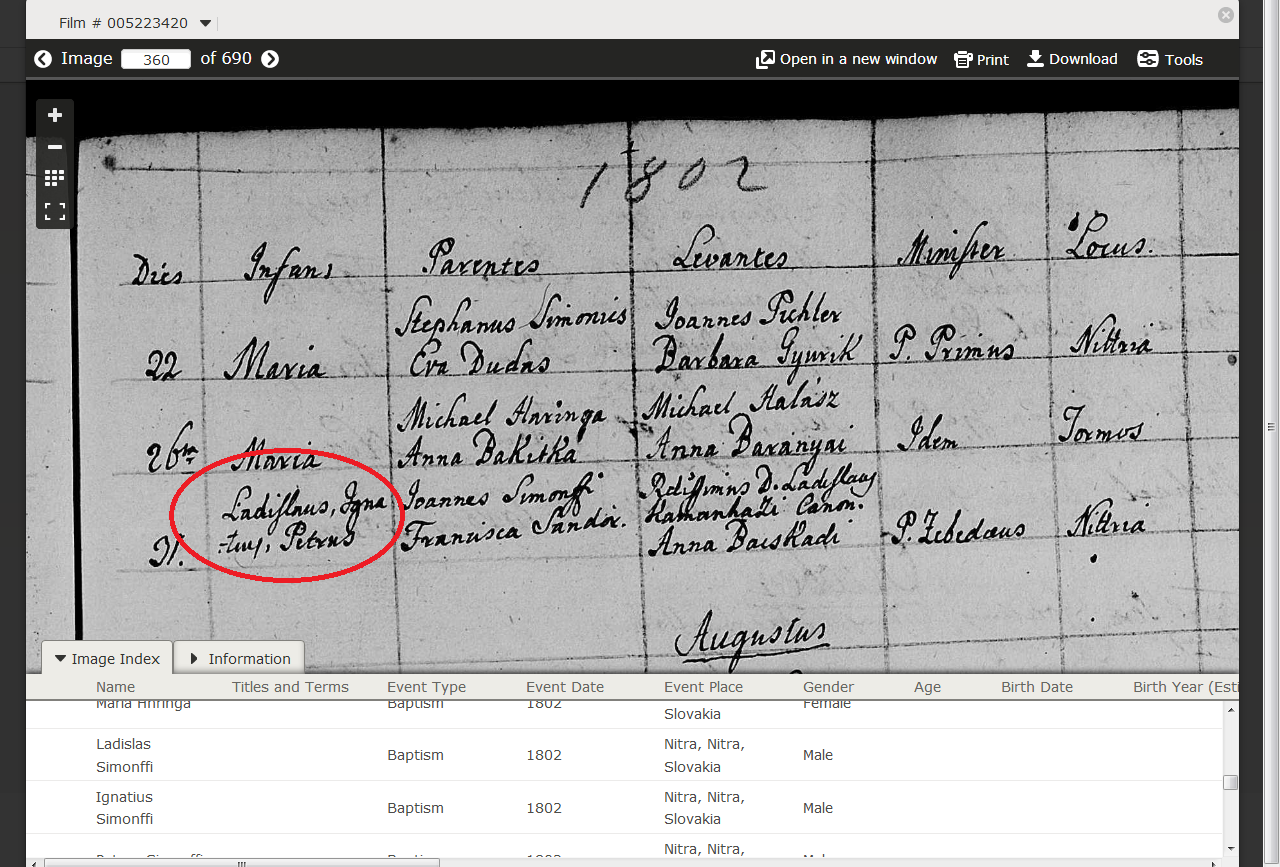 Film # 005223420
Image 360 of 690
Open in a new window Print Download Tools
1802
Dies Infans Parentes Levantes Minister Locus.
Stephanus Simonics Joannes Pichler
22 Maria Eva Dudas Barbara Gyurik P. Primus Nittria
Michael Haringa Michael Halász
26ta Maria Anna Bakitka Anna Baranyai Idem Tormos
Ladislaus, Igna Joannes Simonffi Rdissimus D. Ladislaus
Kamanhazi Canon.
31. -tius, Petrus Francisca Sandor. Anna Bacskadi P. Zebedaeus Nittria
Augustus
Image Index Information
Name Titles and Terms Event Type Event Date Event Place Gender Age Birth Date Birth Year (Esti
Maria Hriringa Baptism 1802 Slovakia Female
Ladislas Simonffi Baptism 1802 Nitra, Nitra, Slovakia Male
Ignatius Simonffi Baptism 1802 Nitra, Nitra, Slovakia Male